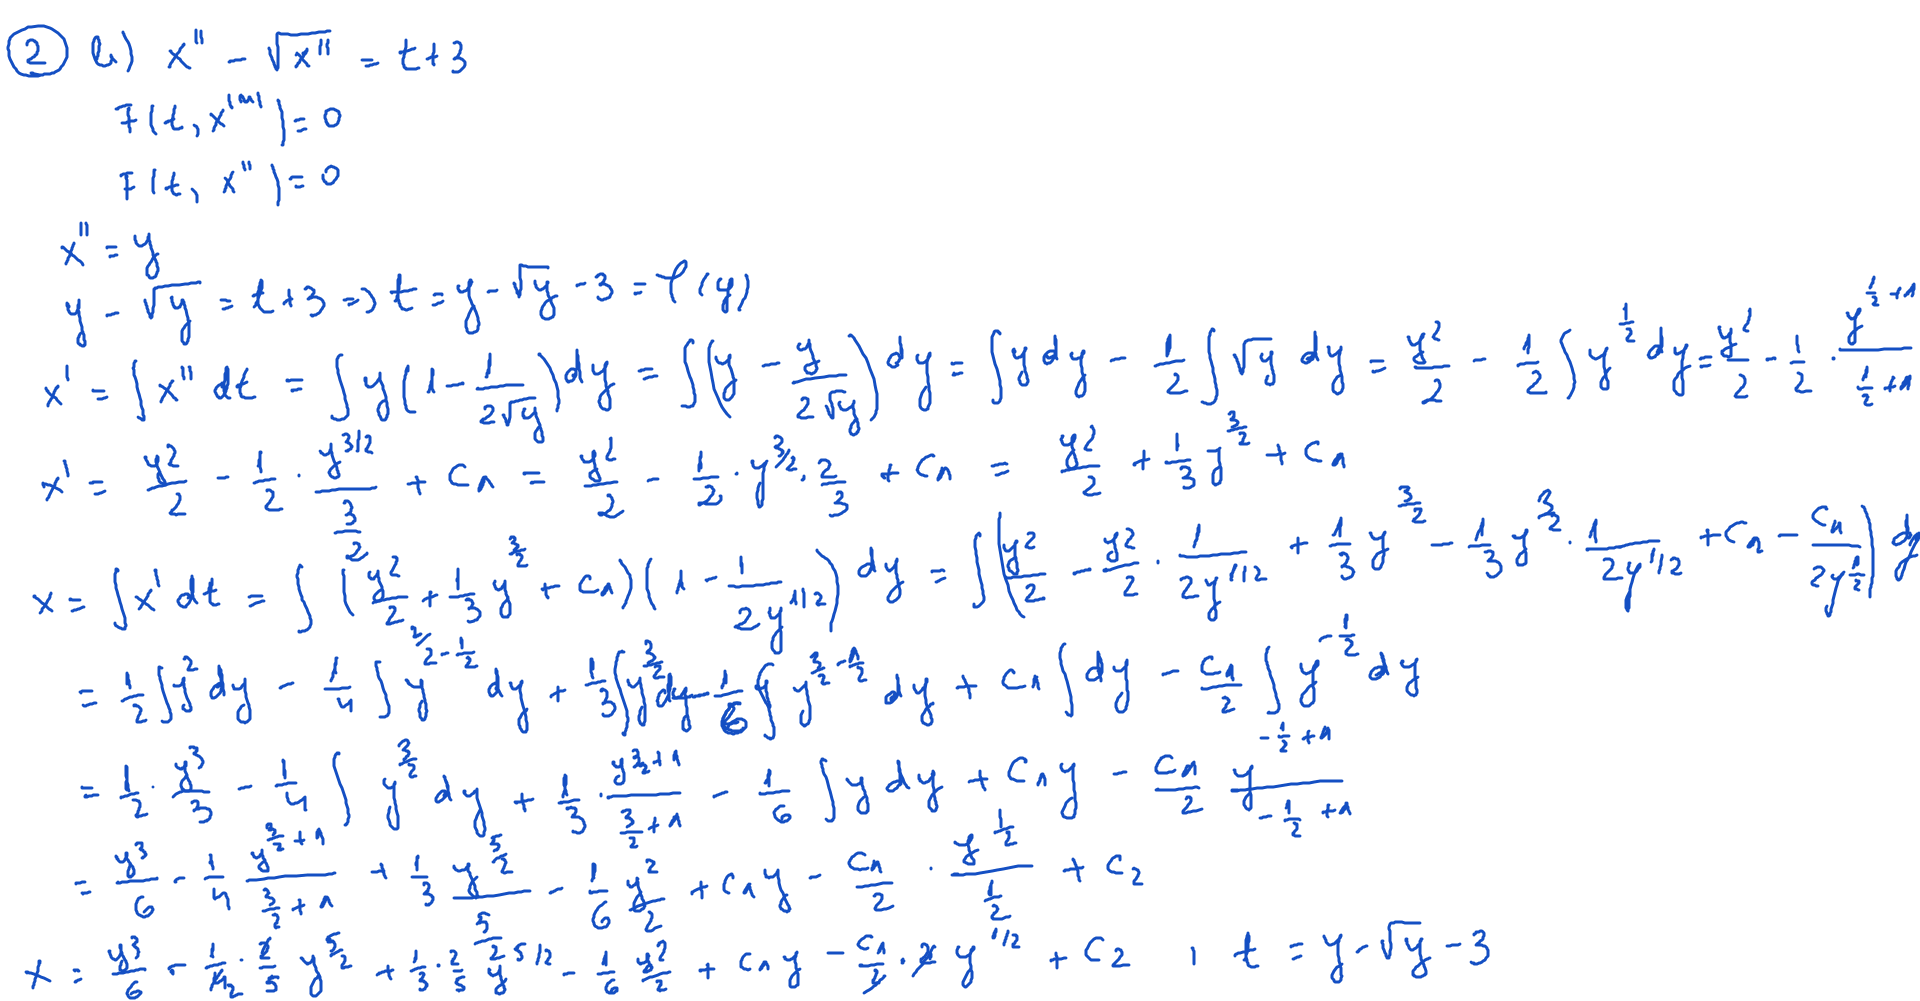 ② b) x'' - √x'' = t+3
F(t, x⁽ⁿ⁾) = 0
F(t, x'') = 0
x'' = y
y - √y = t+3 => t = y - √y - 3 = φ(y)
x' = ∫ x'' dt = ∫ y(1 - 1/(2√y)) dy = ∫ (y - y/(2√y)) dy = ∫ y dy - 1/2 ∫ √y dy = y²/2 - 1/2 ∫ y^(1/2) dy = y²/2 - 1/2 · y^(1/2+1)/(1/2+1)
x' = y²/2 - 1/2 · y^(3/2)/(3/2) + C₁ = y²/2 - 1/2 · y^(3/2) · 2/3 + C₁ = y²/2 + 1/3 y^(3/2) + C₁
x = ∫ x' dt = ∫ (y²/2 + 1/3 y^(3/2) + C₁)(1 - 1/(2y^(1/2))) dy = ∫ (y²/2 - y²/2 · 1/(2y^(1/2)) + 1/3 y^(3/2) - 1/3 y^(3/2) · 1/(2y^(1/2)) + C₁ - C₁/(2y^(1/2))) dy
= 1/2 ∫ y² dy - 1/4 ∫ y^(2/2-1/2) dy + 1/3 ∫ y^(3/2) dy - 1/6 ∫ y^(3/2-1/2) dy + C₁ ∫ dy - C₁/2 ∫ y^(-1/2) dy
= 1/2 · y³/3 - 1/4 ∫ y^(3/2) dy + 1/3 · y^(3/2+1)/(3/2+1) - 1/6 ∫ y dy + C₁y - C₁/2 y^(-1/2+1)/(-1/2+1)
= y³/6 - 1/4 y^(3/2+1)/(3/2+1) + 1/3 y^(5/2)/(5/2) - 1/6 y²/2 + C₁y - C₁/2 · y^(1/2)/(1/2) + C₂
x = y³/6 - 1/4₂ · 2/5 y^(5/2) + 1/3 · 2/5 y^(5/2) - 1/6 y²/2 + C₁y - C₁/2 · 2 y^(1/2) + C₂ , t = y - √y - 3